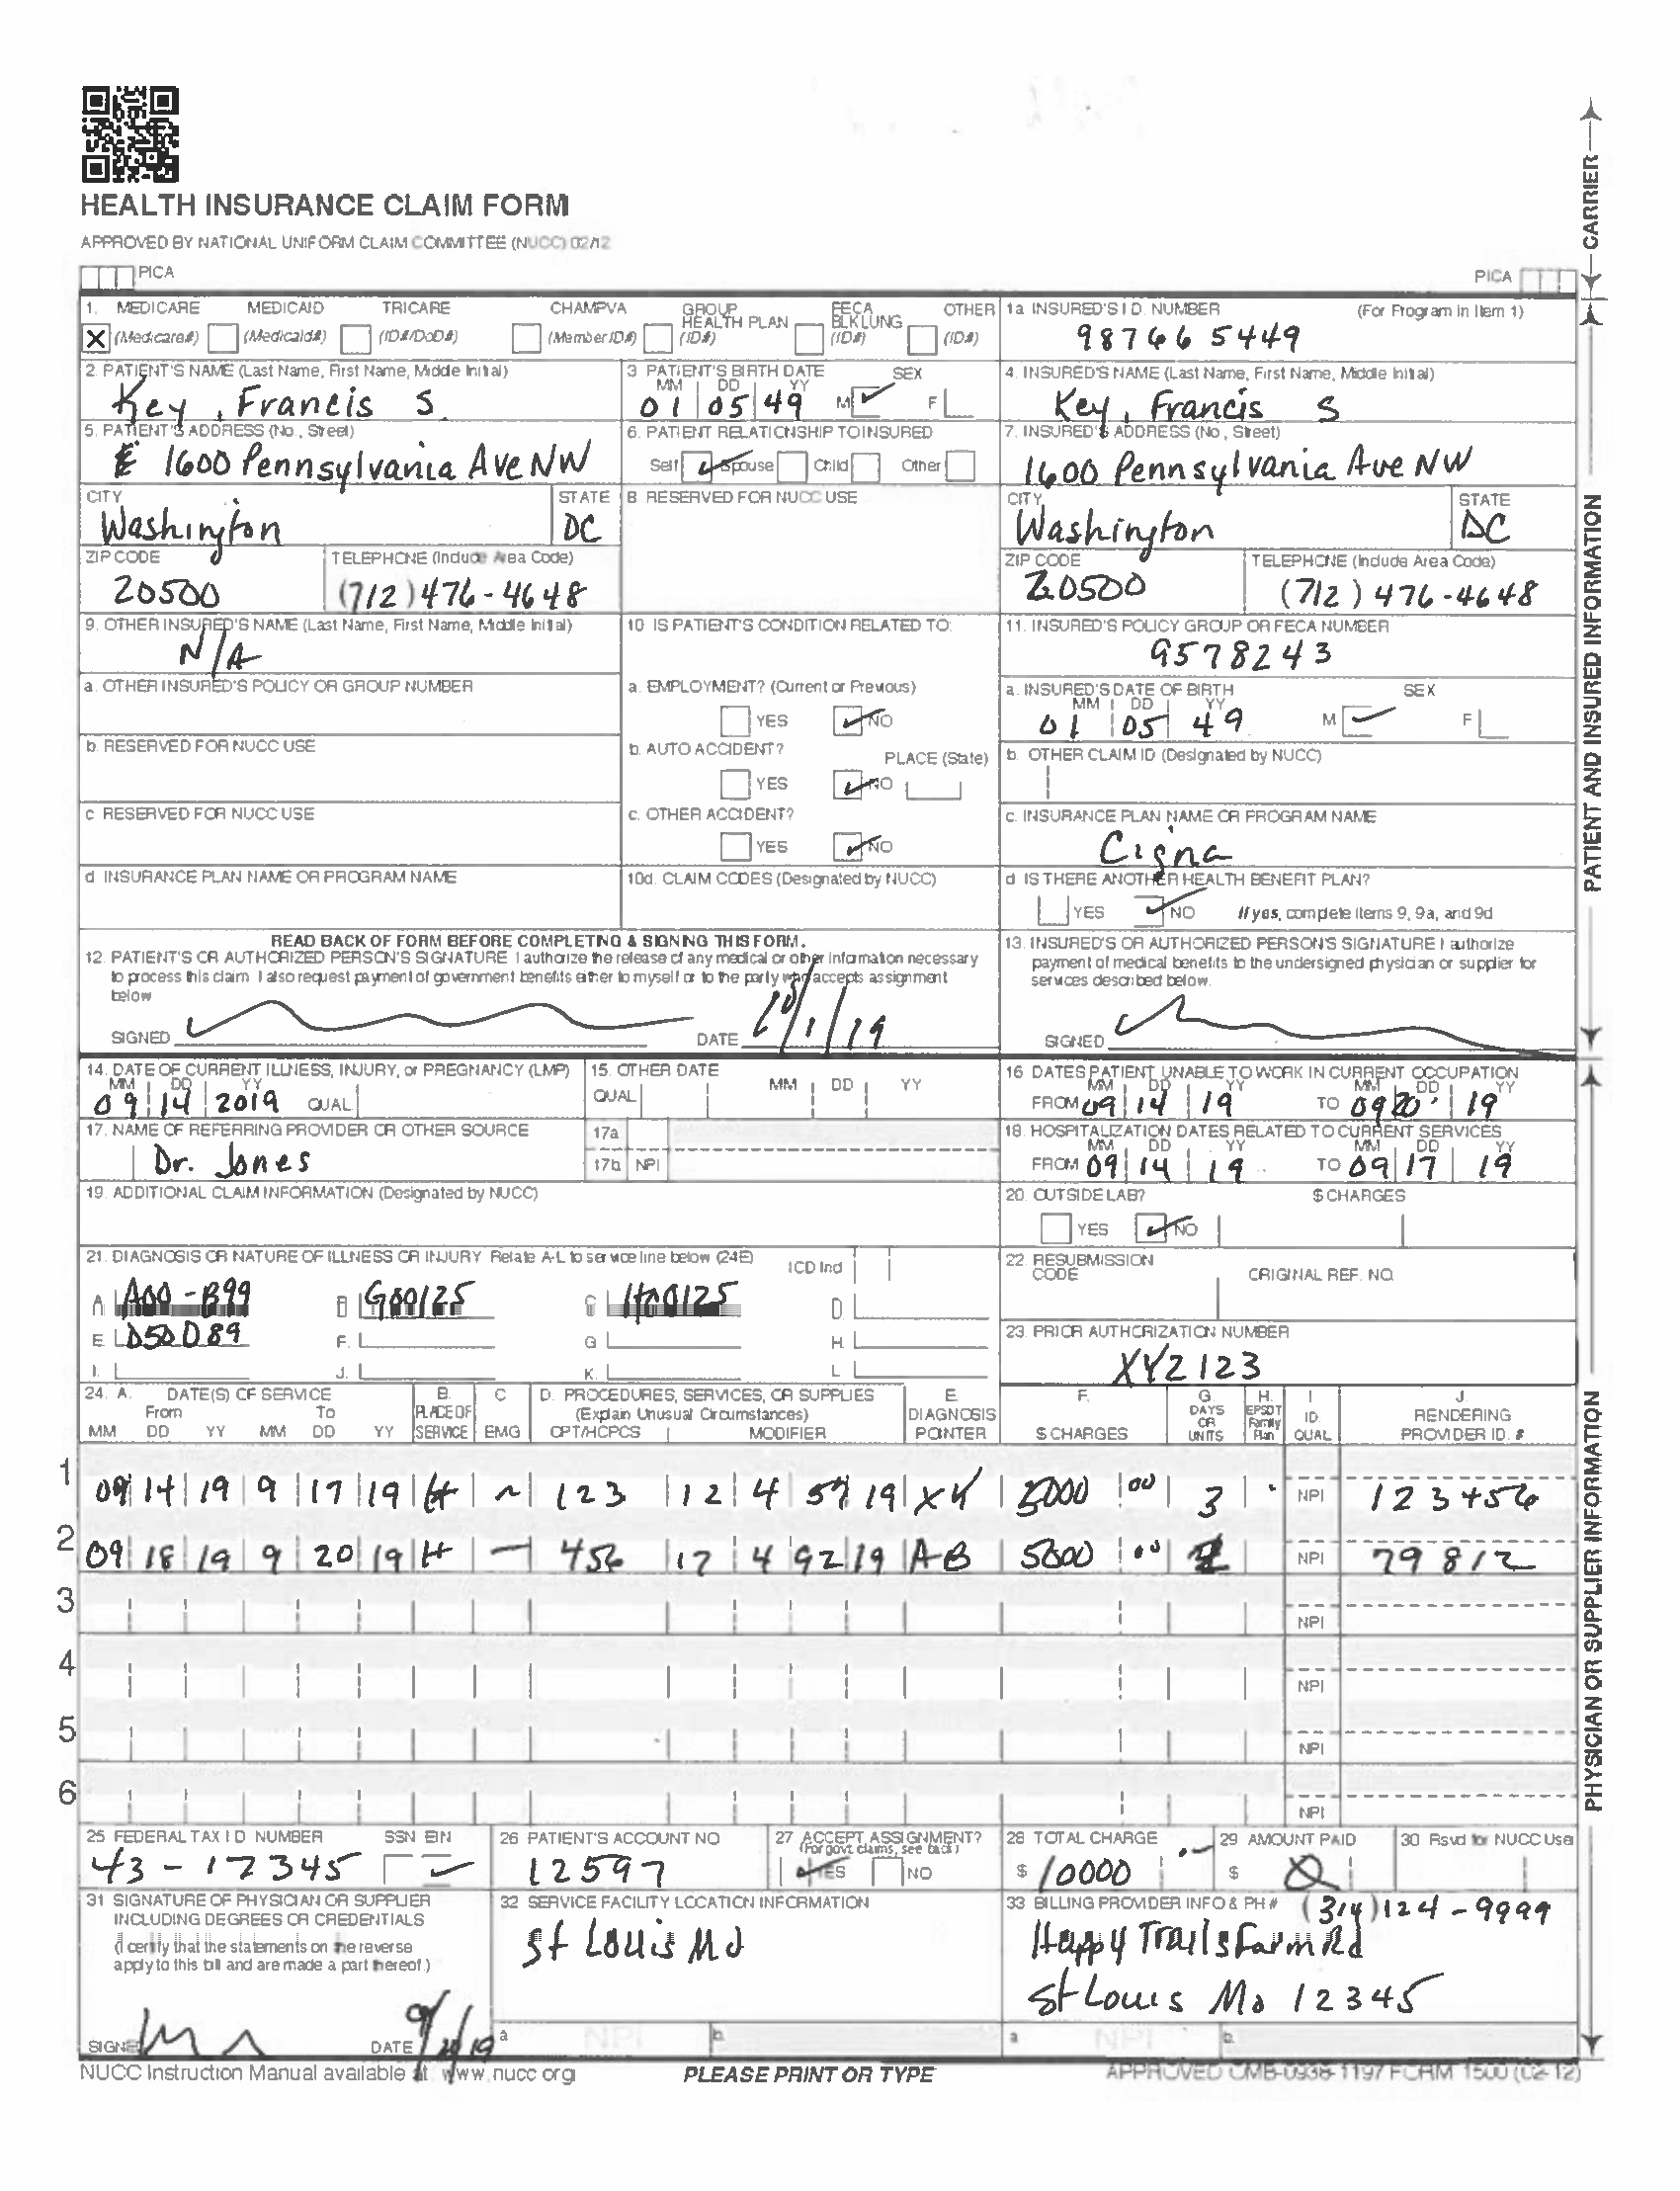 HEALTH INSURANCE CLAIM FORM
APPROVED BY NATIONAL UNIFORM CLAIM COMMITTEE (NUCC) 02/12
PICA
PICA
CARRIER
1. MEDICARE MEDICAID TRICARE CHAMPVA GROUP HEALTH PLAN FECA BLK LUNG OTHER
X (Medicare#) (Medicaid#) (ID#/DoD#) (Member ID#) (ID#) (ID#) (ID#)
1a INSURED'S I D. NUMBER (For Program in Item 1)
98766 5449
2. PATIENT'S NAME (Last Name, First Name, Middle Initial)
Key, Francis S.
3 PATIENT'S BIRTH DATE SEX
MM DD YY
01 05 49 M F
4. INSURED'S NAME (Last Name, First Name, Middle Initial)
Key, Francis S
5. PATIENT'S ADDRESS (No., Street)
1600 Pennsylvania Ave NW
6. PATIENT RELATIONSHIP TO INSURED
Self Spouse Child Other
7. INSURED'S ADDRESS (No., Street)
1600 Pennsylvania Ave NW
CITY STATE
Washington DC
8 RESERVED FOR NUCC USE
CITY STATE
Washington DC
ZIP CODE TELEPHONE (Include Area Code)
20500 (712) 476-4648
ZIP CODE TELEPHONE (Include Area Code)
20500 (712) 476-4648
9. OTHER INSURED'S NAME (Last Name, First Name, Middle Initial)
N/A
10 IS PATIENT'S CONDITION RELATED TO:
11. INSURED'S POLICY GROUP OR FECA NUMBER
9578243
a. OTHER INSURED'S POLICY OR GROUP NUMBER
a. EMPLOYMENT? (Current or Previous)
YES NO
a. INSURED'S DATE OF BIRTH SEX
MM DD YY
01 05 49 M F
b. RESERVED FOR NUCC USE
b. AUTO ACCIDENT? PLACE (State)
YES NO
b. OTHER CLAIM ID (Designated by NUCC)
c RESERVED FOR NUCC USE
c. OTHER ACCIDENT?
YES NO
c. INSURANCE PLAN NAME OR PROGRAM NAME
Cigna
d INSURANCE PLAN NAME OR PROGRAM NAME
10d. CLAIM CODES (Designated by NUCC)
d IS THERE ANOTHER HEALTH BENEFIT PLAN?
YES NO If yes, complete items 9, 9a, and 9d
PATIENT AND INSURED INFORMATION
READ BACK OF FORM BEFORE COMPLETING & SIGNING THIS FORM.
12. PATIENT'S OR AUTHORIZED PERSON'S SIGNATURE I authorize the release of any medical or other information necessary
to process this claim I also request payment of government benefits either to myself or to the party who accepts assignment
below
SIGNED DATE 10/1/19
13. INSURED'S OR AUTHORIZED PERSON'S SIGNATURE I authorize
payment of medical benefits to the undersigned physician or supplier for
services described below.
SIGNED
14. DATE OF CURRENT ILLNESS, INJURY, or PREGNANCY (LMP)
MM DD YY
09 14 2019 QUAL
15. OTHER DATE
QUAL MM DD YY
16 DATES PATIENT UNABLE TO WORK IN CURRENT OCCUPATION
MM DD YY MM DD YY
FROM 09 14 19 TO 09 20 19
17. NAME OF REFERRING PROVIDER OR OTHER SOURCE
Dr. Jones
17a
17b NPI
18. HOSPITALIZATION DATES RELATED TO CURRENT SERVICES
MM DD YY MM DD YY
FROM 09 14 19 TO 09 17 19
19. ADDITIONAL CLAIM INFORMATION (Designated by NUCC)
20. OUTSIDE LAB? $ CHARGES
YES NO
21. DIAGNOSIS OR NATURE OF ILLNESS OR INJURY Relate A-L to service line below (24E) ICD Ind
A A00-B99 B G00125 C H00125 D.
E D50D89 F. G H.
I. J. K. L
22. RESUBMISSION CODE ORIGINAL REF. NO.
23. PRIOR AUTHORIZATION NUMBER
XYZ123
24. A. DATE(S) OF SERVICE B. C D. PROCEDURES, SERVICES, OR SUPPLIES E. F. G H. I J.
From To PLACE OF (Explain Unusual Circumstances) DIAGNOSIS DAYS OR UNITS EPSDT Family Plan ID. QUAL RENDERING
MM DD YY MM DD YY SERVICE EMG CPT/HCPCS MODIFIER POINTER $ CHARGES PROVIDER ID. #
1 09 14 19 9 17 19 H ~ 123 12 4 57 19 XY 5000 00 3 NPI 123456
2 09 18 19 9 20 19 H — 456 17 4 92 19 AB 5000 00 NPI 79812
3 NPI
4 NPI
5 NPI
6 NPI
25 FEDERAL TAX I D NUMBER SSN EIN
43-12345
26 PATIENT'S ACCOUNT NO
12597
27 ACCEPT ASSIGNMENT?
(For govt. claims, see back)
YES NO
28 TOTAL CHARGE
$ 10000
29 AMOUNT PAID
$ 0
30 Rsvd for NUCC Use
31 SIGNATURE OF PHYSICIAN OR SUPPLIER
INCLUDING DEGREES OR CREDENTIALS
(I certify that the statements on the reverse
apply to this bill and are made a part thereof.)
SIGNED DATE 9/20/19
32 SERVICE FACILITY LOCATION INFORMATION
St Louis Mo
a NPI b.
33 BILLING PROVIDER INFO & PH # (314) 124-9999
Happy Trails Farm Rd
St Louis Mo 12345
a NPI b.
PHYSICIAN OR SUPPLIER INFORMATION
NUCC Instruction Manual available at www.nucc.org
PLEASE PRINT OR TYPE
APPROVED OMB-0938-1197 FORM 1500 (02-12)